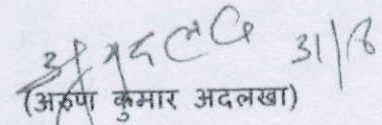 31/8
(अरुण कुमार अदलखा)